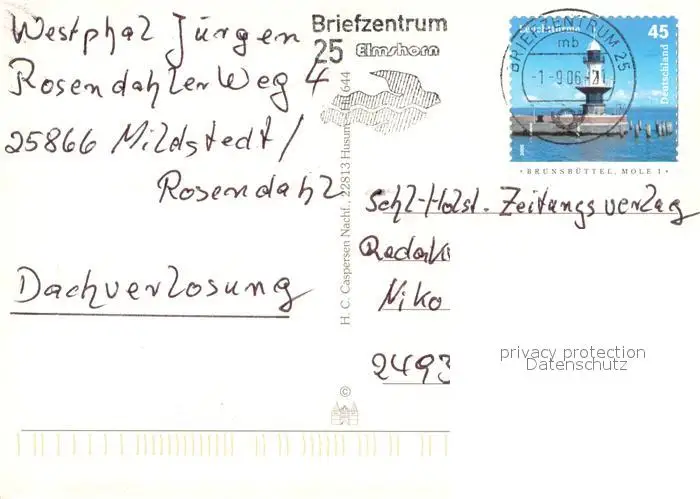 Westphal Jürgen
Rosendahler Weg 4
25866 Mildstedt /
Rosendahl
Dachverlosung
Briefzentrum
25 Elmshorn
BRIEFZENTRUM 25
mb
-1.-9.06.-21
Leuchttürme
45
Deutschland
2005
· BRUNSBÜTTEL, MOLE 1 ·
H. C. Caspersen Nachf., 22813 Husum
644
©
Schl-Holst. Zeitungsverlag
Redak
Niko
2493
privacy protection
Datenschutz